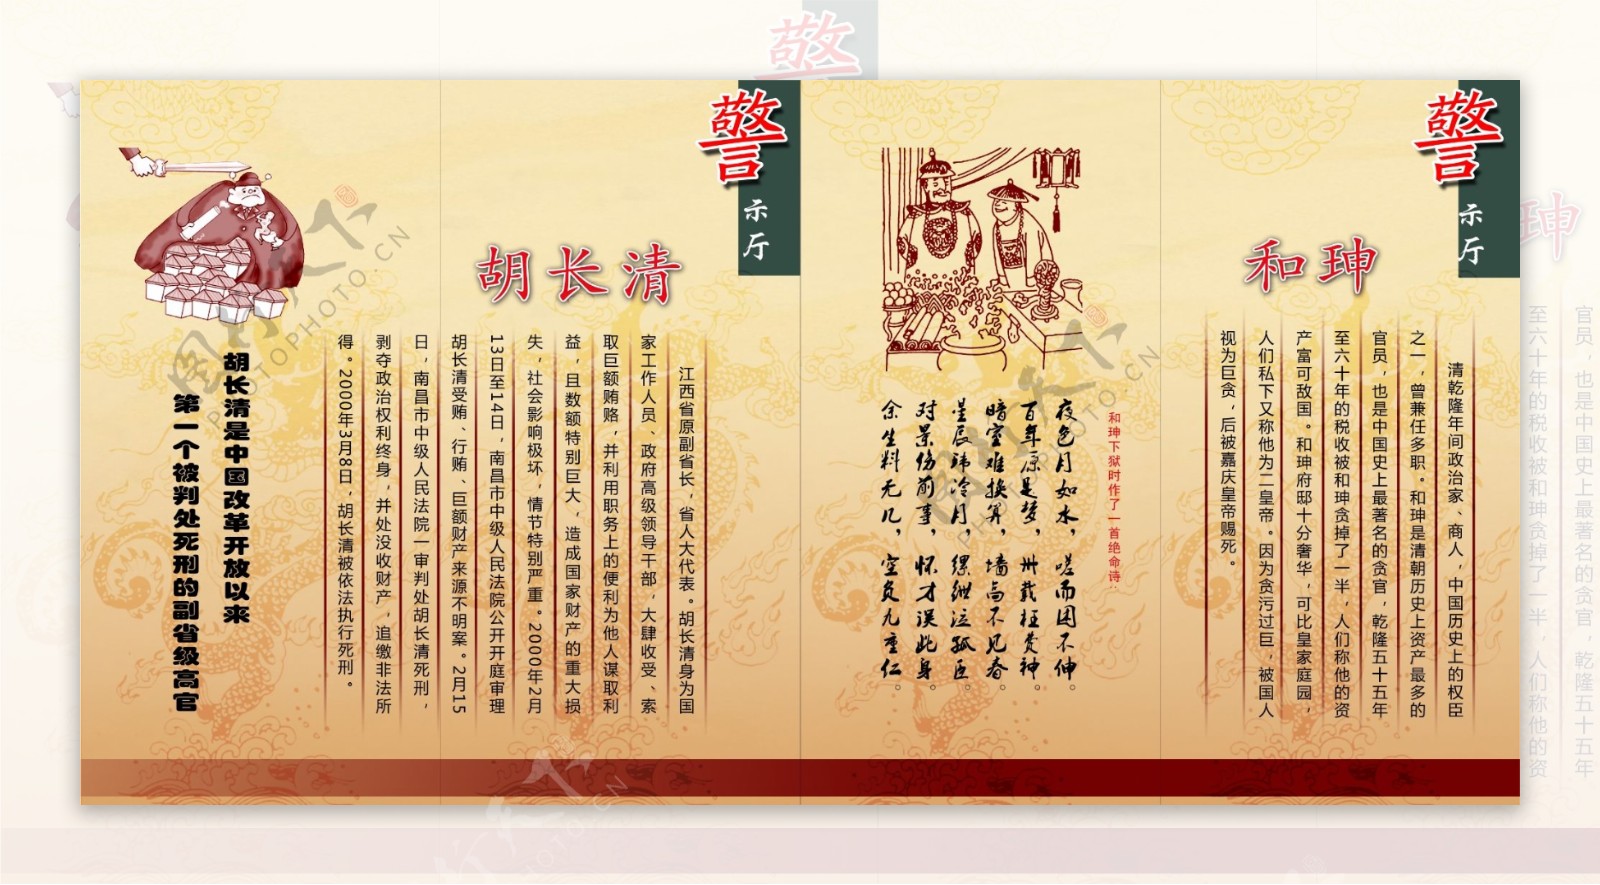 警
示厅
和珅
清乾隆年间政治家、商人，中国历史上的权臣
之一，曾兼任多职。和珅是清朝历史上资产最多的
官员，也是中国史上最著名的贪官，乾隆五十五年
至六十年的税收被和珅贪掉了一半，人们称他的资
产富可敌国。和珅府邸十分奢华，可比皇家庭园，
人们私下又称他为二皇帝。因为贪污过巨，被国人
视为巨贪，后被嘉庆皇帝赐死。
和珅下狱时作了一首绝命诗：
夜色月如水，嗟而困不伸。
百年原是梦，卅载枉费神。
暗室难换算，墙高不见春。
星辰玮冷月，缧绁泣孤臣。
对景伤前事，怀才误此身。
余生料无几，空负九重仁。
警
示厅
胡长清
江西省原副省长，省人大代表。胡长清身为国
家工作人员、政府高级领导干部，大肆收受、索
取巨额贿赂，并利用职务上的便利为他人谋取利
益，且数额特别巨大，造成国家财产的重大损
失，社会影响极坏，情节特别严重。2000年2月
13日至14日，南昌市中级人民法院公开开庭审理
胡长清受贿、行贿、巨额财产来源不明案。2月15
日，南昌市中级人民法院一审判处胡长清死刑，
剥夺政治权利终身，并处没收财产，追缴非法所
得。2000年3月8日，胡长清被依法执行死刑。
胡长清是中国改革开放以来
第一个被判处死刑的副省级高官